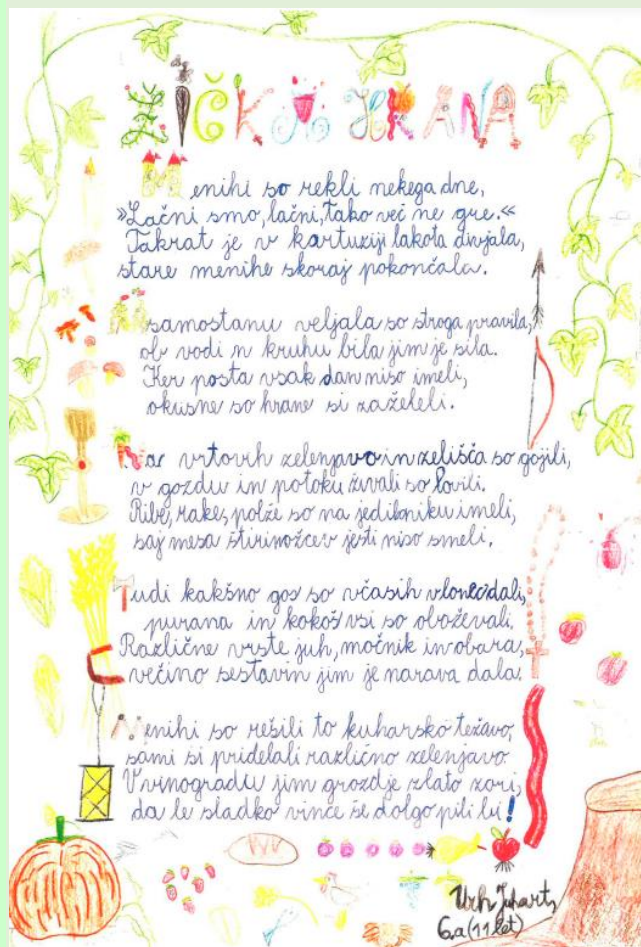 ŽIČKA HRANA
Menihi so rekli nekega dne,
»Lačni smo, lačni, tako več ne gre.«
Takrat je v kartuziji lakota divjala,
stare menihe skoraj pokončala.
V samostanu veljala so stroga pravila,
ob vodi n kruhu bila jim je sila.
Ker posta vsak dan niso imeli,
okusne so hrane si zaželeli.
Na vrtovih zelenjavo in zelišča so gojili,
v gozdu in potoku živali so lovili.
Ribe, rake, polže so na jedilniku imeli,
saj mesa štirinožcev jesti niso smeli.
Tudi kakšno gos so včasih v lonec dali,
purana in kokoš vsi so oboževali.
Različne vrste juh, močnik in obara,
večino sestavin jim je narava dala.
Menihi so rešili to kuharsko težavo,
sami si pridelali različno zelenjavo.
V vinogradu jim grozdje zlato zori,
da le sladko vince še dolgo pili bi!
Urh Juhart,
6.a (11 let)